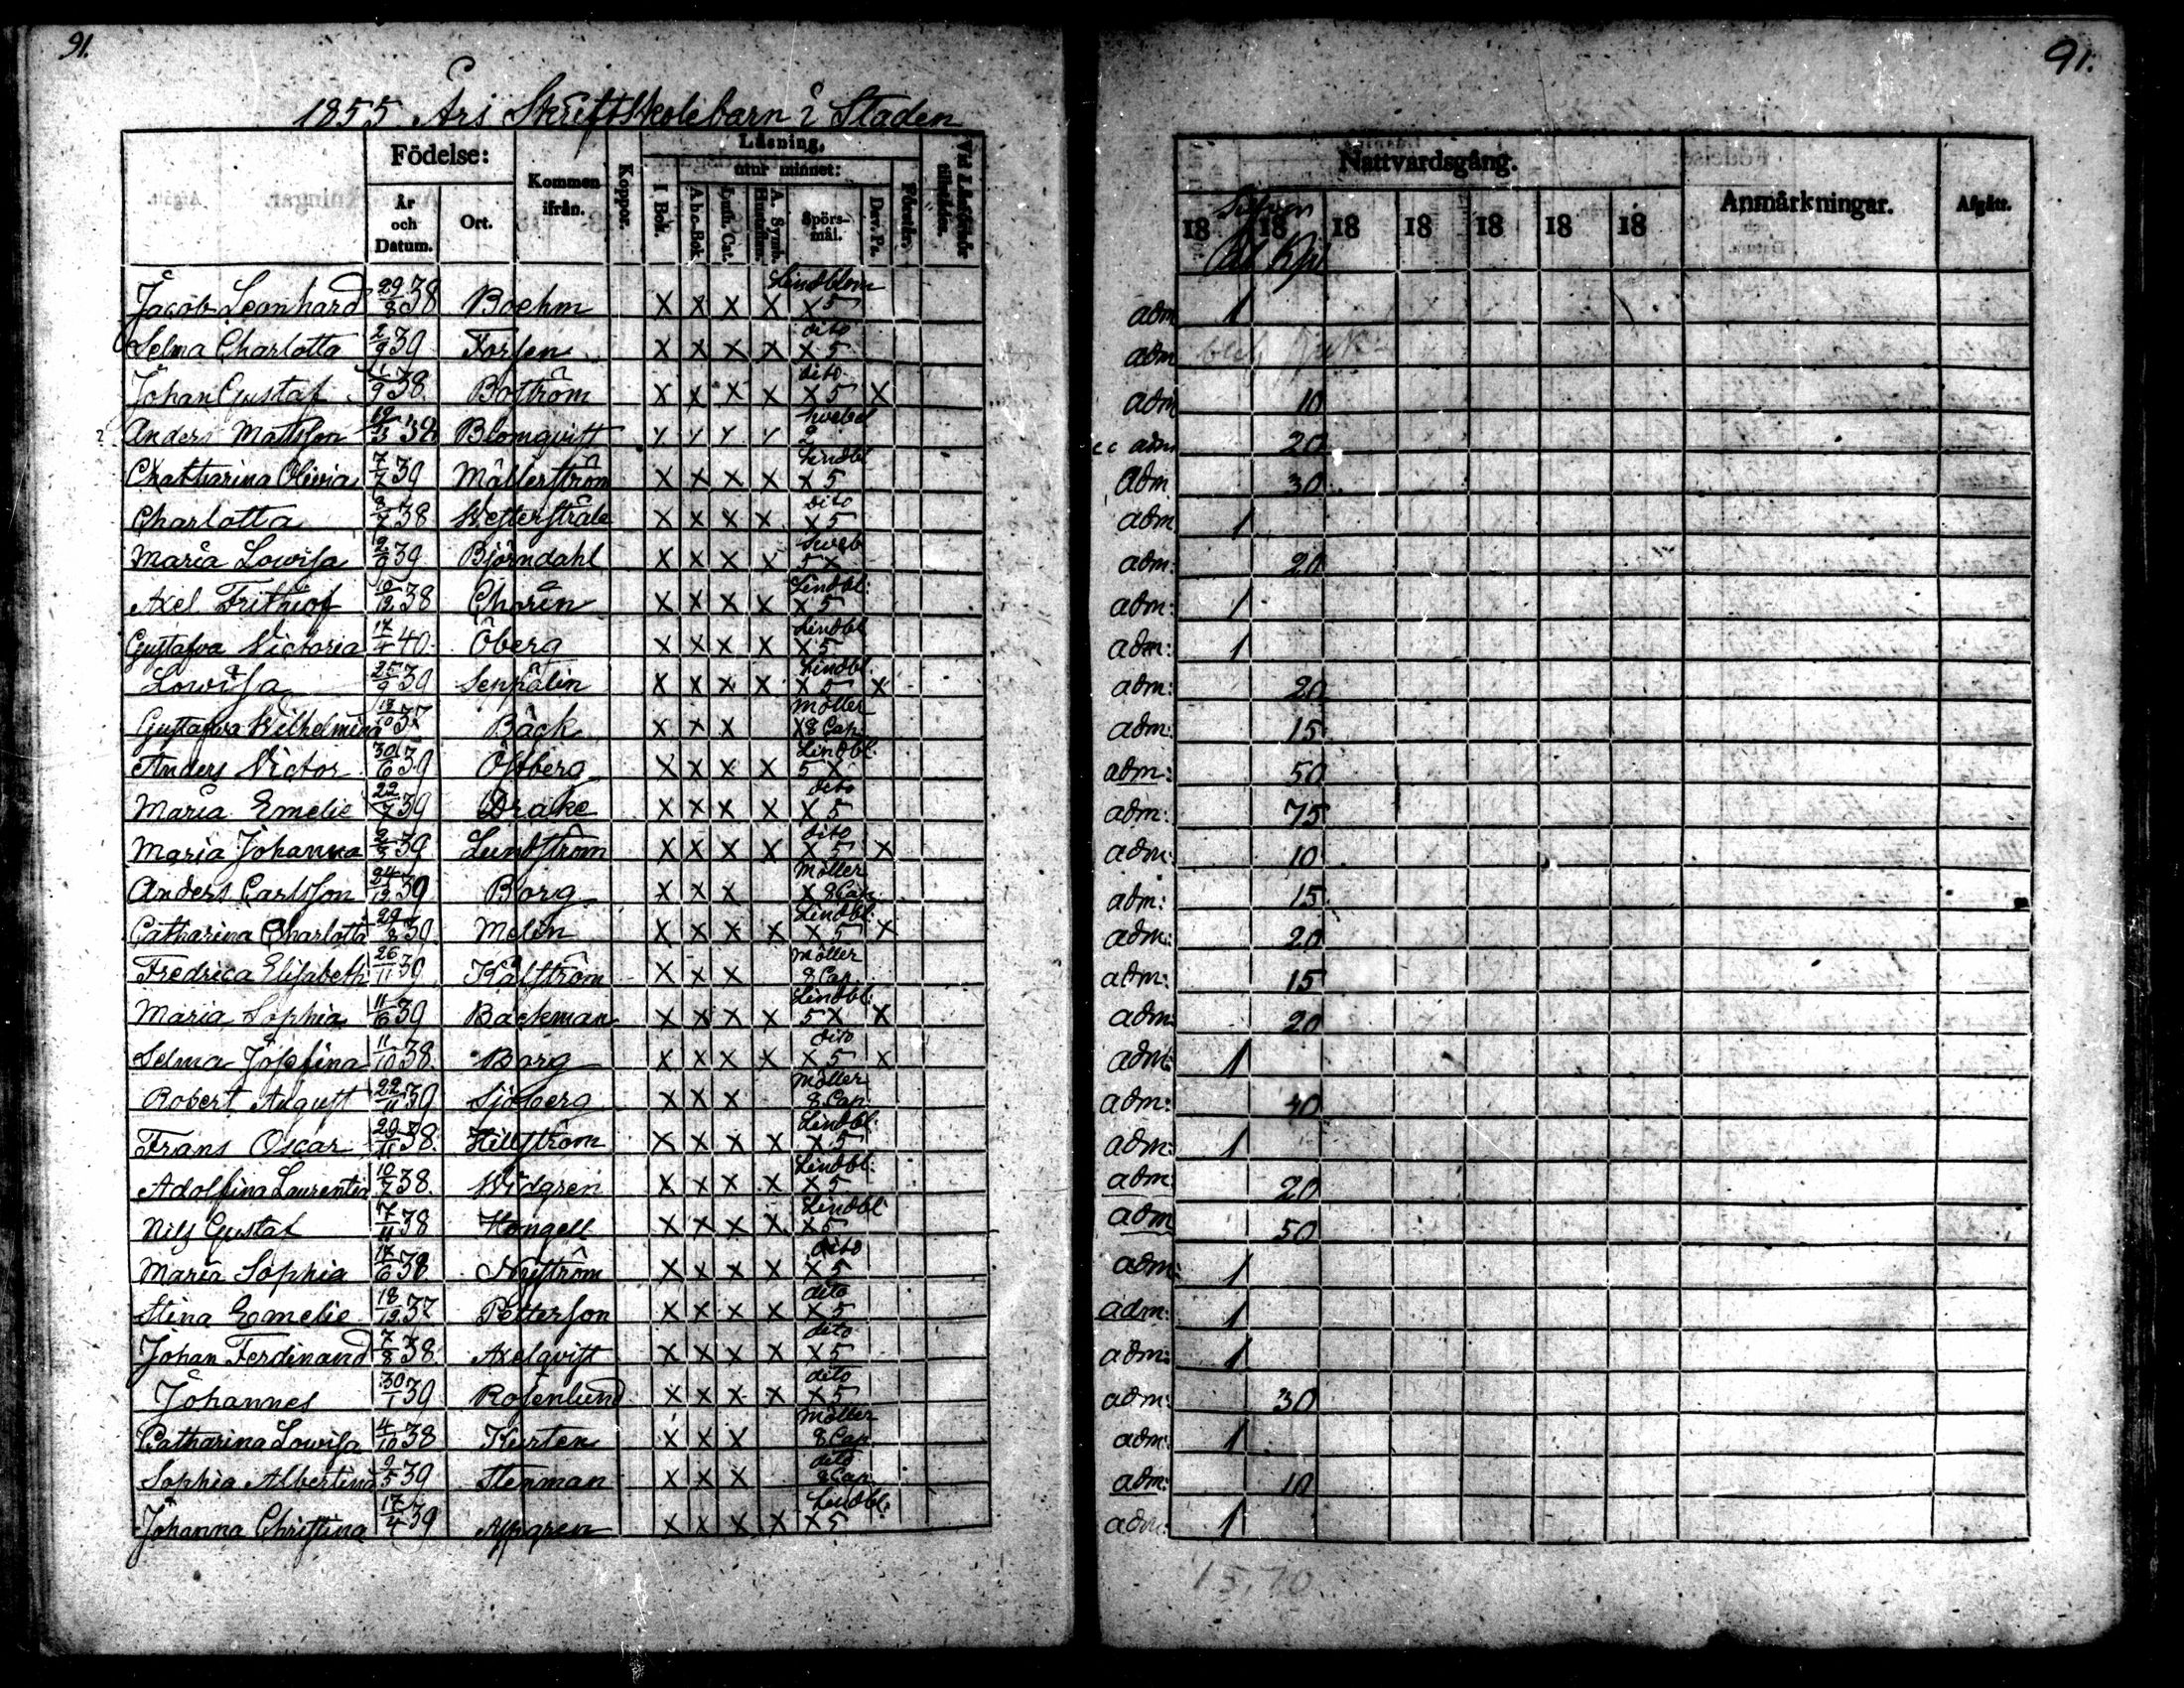 91.
91.
1855 Års Skriftskolebarn i Staden
Födelse:
Kommen ifrån.
Koppor.
Läsning,
utur minnet:
År och Datum.
Ort.
I Bok.
A b c-Bok
Luth. Cat.
A. Symb. Hustaflan.
Spörs-mål.
Dav. Ps.
Förstår.
Vid Läsförhör tillstädes.
Nattvardsgång.
Silfver
18 18 18 18 18 18 18
Rbl Kpk
Anmärkningar.
Afgått.
Jacob Leonhard 29/8 38 Boehm X X X X Lindblom X 5 adm 1
Selma Charlotta 2/9 39 Forsen X X X X dito X 5 adm
Johan Gustaf 1/9 38. Boström X X X X dito X 5 X adm 10
? Anders Mattsson 19/3 32 Blomqvist Swebel 2 adm 20
Chatharina Olivia 7/7 39 Mällerström X X X X Lindbl X 5 Adm 30
Charlotta 8/7 38 Wetterstråle X X X X dito X 5 adm 1
Maria Lowisa 2/6 39 Björndahl X X X X Sweb 5 X adm: 20
Axel Frithiof 10/12 38 Chorin X X X X Lindbl: X 5 adm: 1
Gustafva Victoria 17/1 40. Öberg X X X X Lindbl X 5 adm: 1
Lowisa 25/9 39 Seppälin X X X X Lindbl. X 5 X adm: 20
Gustafva Wilhelmina 18/10 37 Bäck X X X Möller X 8 Cap adm: 15
Anders Victor 30/6 39 Östberg X X X X Lindbl. 5 X adm: 50
Maria Emelie 22/7 39 Drake X X X X dito X 5 adm: 75
Maria Johanna 2/3 39 Lundström X X X X dito X 5 X adm: 10
Anders Carlsson 24/12 39 Borg X X X Möller X 8 Cap. adm: 15
Catharina Charlotta 29/8 39. Melin X X X X Lindbl: X 5 X adm: 20
Fredrica Elisabeth 26/11 39 Kålström X X X Möller 8 Cap adm: 15
Maria Sophia 11/6 39 Backman X X X X Lindbl: 5 X X adm: 20
Selma Josefina 11/10 38. Borg X X X X dito X 5 X adm: 1
Robert August 22/11 39 Sjöberg X X X Möller 8 Cap adm: 40
Frans Oscar 29/11 38. Hillström X X X X Lindbl. X 5 adm: 1
Adolfina Laurentia 10/7 38. Widgren X X X X Lindbl: X 5 adm: 20
Nils Gustaf 7/11 38 Hongell X X X X Lindbl X 5 adm 50
Maria Sophia 17/6 38 Nyström X X X X dito X 5 adm: 1
Stina Emelie 18/12 37 Petterson X X X X dito X 5 adm: 1
Johan Ferdinand 7/8 38. Axelqvist X X X X dito X 5 adm: 1
Johannes 30/1 39 Rosenlund X X X X dito X 5 adm: 30
Catharina Lowisa 4/10 38 Kurten X X X Möller 8 Cap. adm: 1
Sophia Albertina 9/5 39 Stenman X X X dito 8 Cap adm: 10
Johanna Christina 17/4 39 Aspgren X X X X Lindbl. X 5 adm: 1
15.70